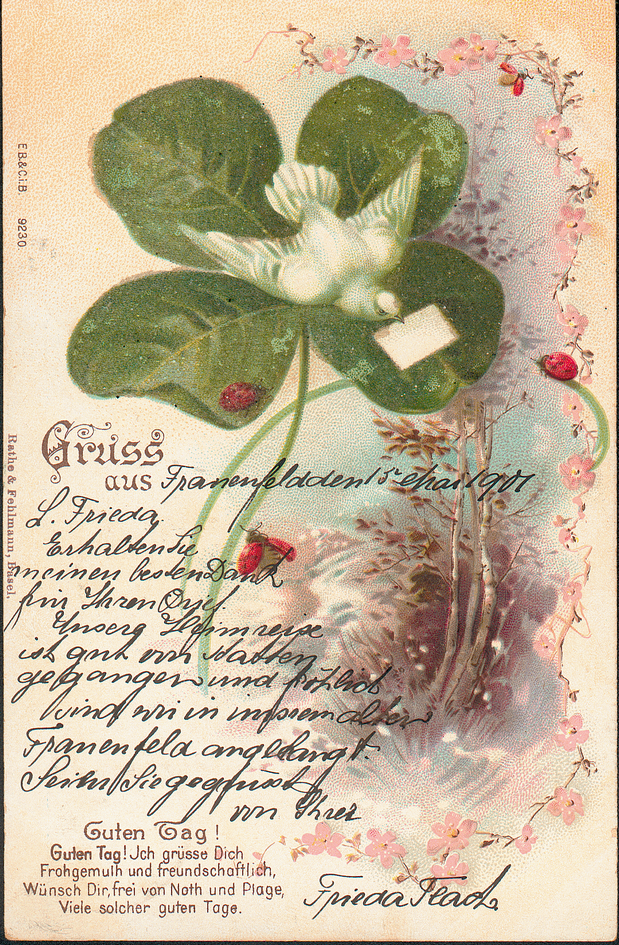 E.B.&C.i.B. 9230.
Rathe & Fehlmann, Basel.
Gruss
aus Frauenfeld den 15 Mai 1901
L. Frieda,
Erhalten Sie
meinen besten Dank
für Ihren Brief.
Unsere Heimreise
ist gut von Statten
gegangen und fröhlich
sind wir in unserem alten
Frauenfeld angelangt.
Seien Sie gegrüsst
von Ihrer
Guten Tag!
Guten Tag! Ich grüsse Dich
Frohgemuth und freundschaftlich,
Wünsch Dir, frei von Noth und Plage,
Viele solcher guten Tage.
Frieda